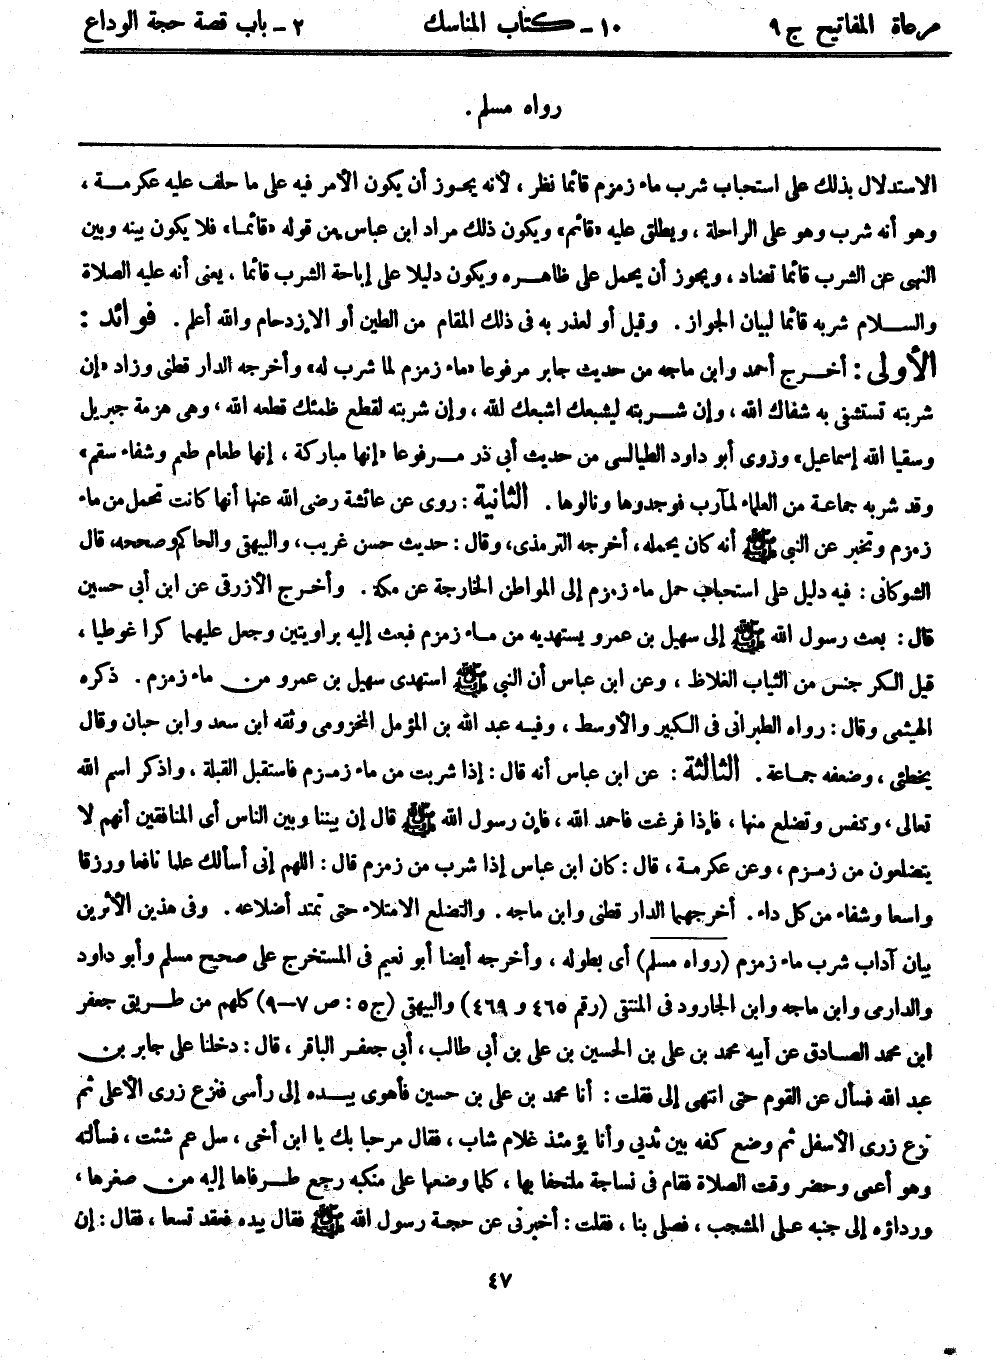 مرعاة المفاتيح ج ٩ ١٠ - كتاب المناسك ٢ - باب قصة حجة الوداع
رواه مسلم .
الاستدلال بذلك على استحباب شرب ماء زمزم قائما نظر ، لأنه يجوز أن يكون الأمر فيه على ما حلف عليه عكرمة ،
وهو أنه شرب وهو على الراحلة ، ويطلق عليه «قائم» ويكون ذلك مراد ابن عباس من قوله «قائما» فلا يكون بينه وبين
النهى عن الشرب قائما تضاد ، ويجوز أن يحمل على ظاهره ويكون دليلا على إباحة الشرب قائما . يعنى أنه عليه الصلاة
والسلام شربه قائما لبيان الجواز . وقيل أو لعذر به فى ذلك المقام من الطين أو الازدحام والله أعلم . فوائد :
الأولى : أخرج أحمد وابن ماجه من حديث جابر مرفوعا «ماء زمزم لما شرب له» وأخرجه الدار قطنى وزاد «إن
شربته تستشفى به شفاك الله ، وإن شربته ليشبعك اشبعك لله ، وإن شربته لقطع ظمئك قطعه الله ، وهى هزمة جبريل
وسقيا الله إسماعيل» وزوى أبو داود الطيالسى من حديث أبى ذر مرفوعا «إنها مباركة ، إنها طعام طعم وشفاء سقم»
وقد شربه جماعة من العلماء لمآرب فوجدوها ونالوها . الثانية : روى عن عائشة رضى الله عنها أنها كانت تحمل من ماء
زمزم وتخبر عن النبى ﷺ أنه كان يحمله ، أخرجه الترمذى ، وقال : حديث حسن غريب ، والبيهقى والحاكم وصححه، قال
الشوكانى : فيه دليل على استحباب حمل ماء زمزم إلى المواطن الخارجة عن مكة . وأخرج الأزرقى عن ابن أبى حسين
قال : بعث رسول الله ﷺ إلى سهيل بن عمرو يستهديه من ماء زمزم فبعث إليه براويتين وجعل عليهما كرا غوطيا ،
قيل الكر جنس من الثياب الغلاظ ، وعن ابن عباس أن النبى ﷺ استهدى سهيل بن عمرو من ماء زمزم . ذكره
الهيثمى وقال : رواه الطبرانى فى الكبير والأوسط ، وفيه عبد الله بن المؤمل المخزومى وثقه ابن سعد وابن حبان وقال
يخطئى ، وضعفه جماعة . الثالثة : عن ابن عباس أنه قال : إذا شربت من ماء زمزم فاستقبل القبلة ، واذكر اسم الله
تعالى ، وتنفس وتضلع منها ، فإذا فرغت فاحمد الله ، فإن رسول الله ﷺ قال إن بيننا وبين الناس أى المنافقين أنهم لا
يتضلعون من زمزم ، وعن عكرمة ، قال : كان ابن عباس إذا شرب من زمزم قال : اللهم إنى أسألك علما نافعا ورزقا
واسعا وشفاء من كل داء . أخرجهما الدار قطنى وابن ماجه . والتضلع الامتلاء حتى تمتد أضلاعه . وفى هذين الأثرين
بيان آداب شرب ماء زمزم (رواه مسلم) أى بطوله ، وأخرجه أيضا أبو نعيم فى المستخرج على صحيح مسلم وأبو داود
والدارمى وابن ماجه وابن الجارود فى المنتقى (رقم ٤٦٥ و ٤٦٩) والبيهقى (ج٥ : ص ٧-٩) كلهم من طريق جعفر
ابن محمد الصادق عن أبيه محمد بن على بن الحسين بن على بن أبى طالب ، أبى جعفر الباقر ، قال : دخلنا على جابر بن
عبد الله فسأل عن القوم حتى انتهى إلى فقلت : أنا محمد بن على بن حسين فأهوى بيده إلى رأسى فنزع زرى الأعلى ثم
نزع زرى الأسفل ثم وضع كفه بين ثديى وأنا يومئذ غلام شاب ، فقال مرحبا بك يا ابن أخى ، سل عم شئت ، فسألته
وهو أعمى وحضر وقت الصلاة فقام فى نساجة ملتحفا بها ، كلما وضعها على منكبه رجع طرفاها إليه من صغرها ،
ورداؤه إلى جنبه على المشجب ، فصلى بنا ، فقلت : أخبرنى عن حجة رسول الله ﷺ فقال بيده فعقد تسعا ، فقال : إن
٤٧